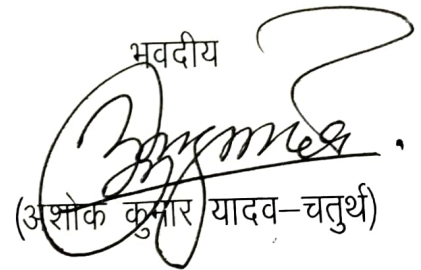 भवदीय
(अशोक कुमार यादव–चतुर्थ)